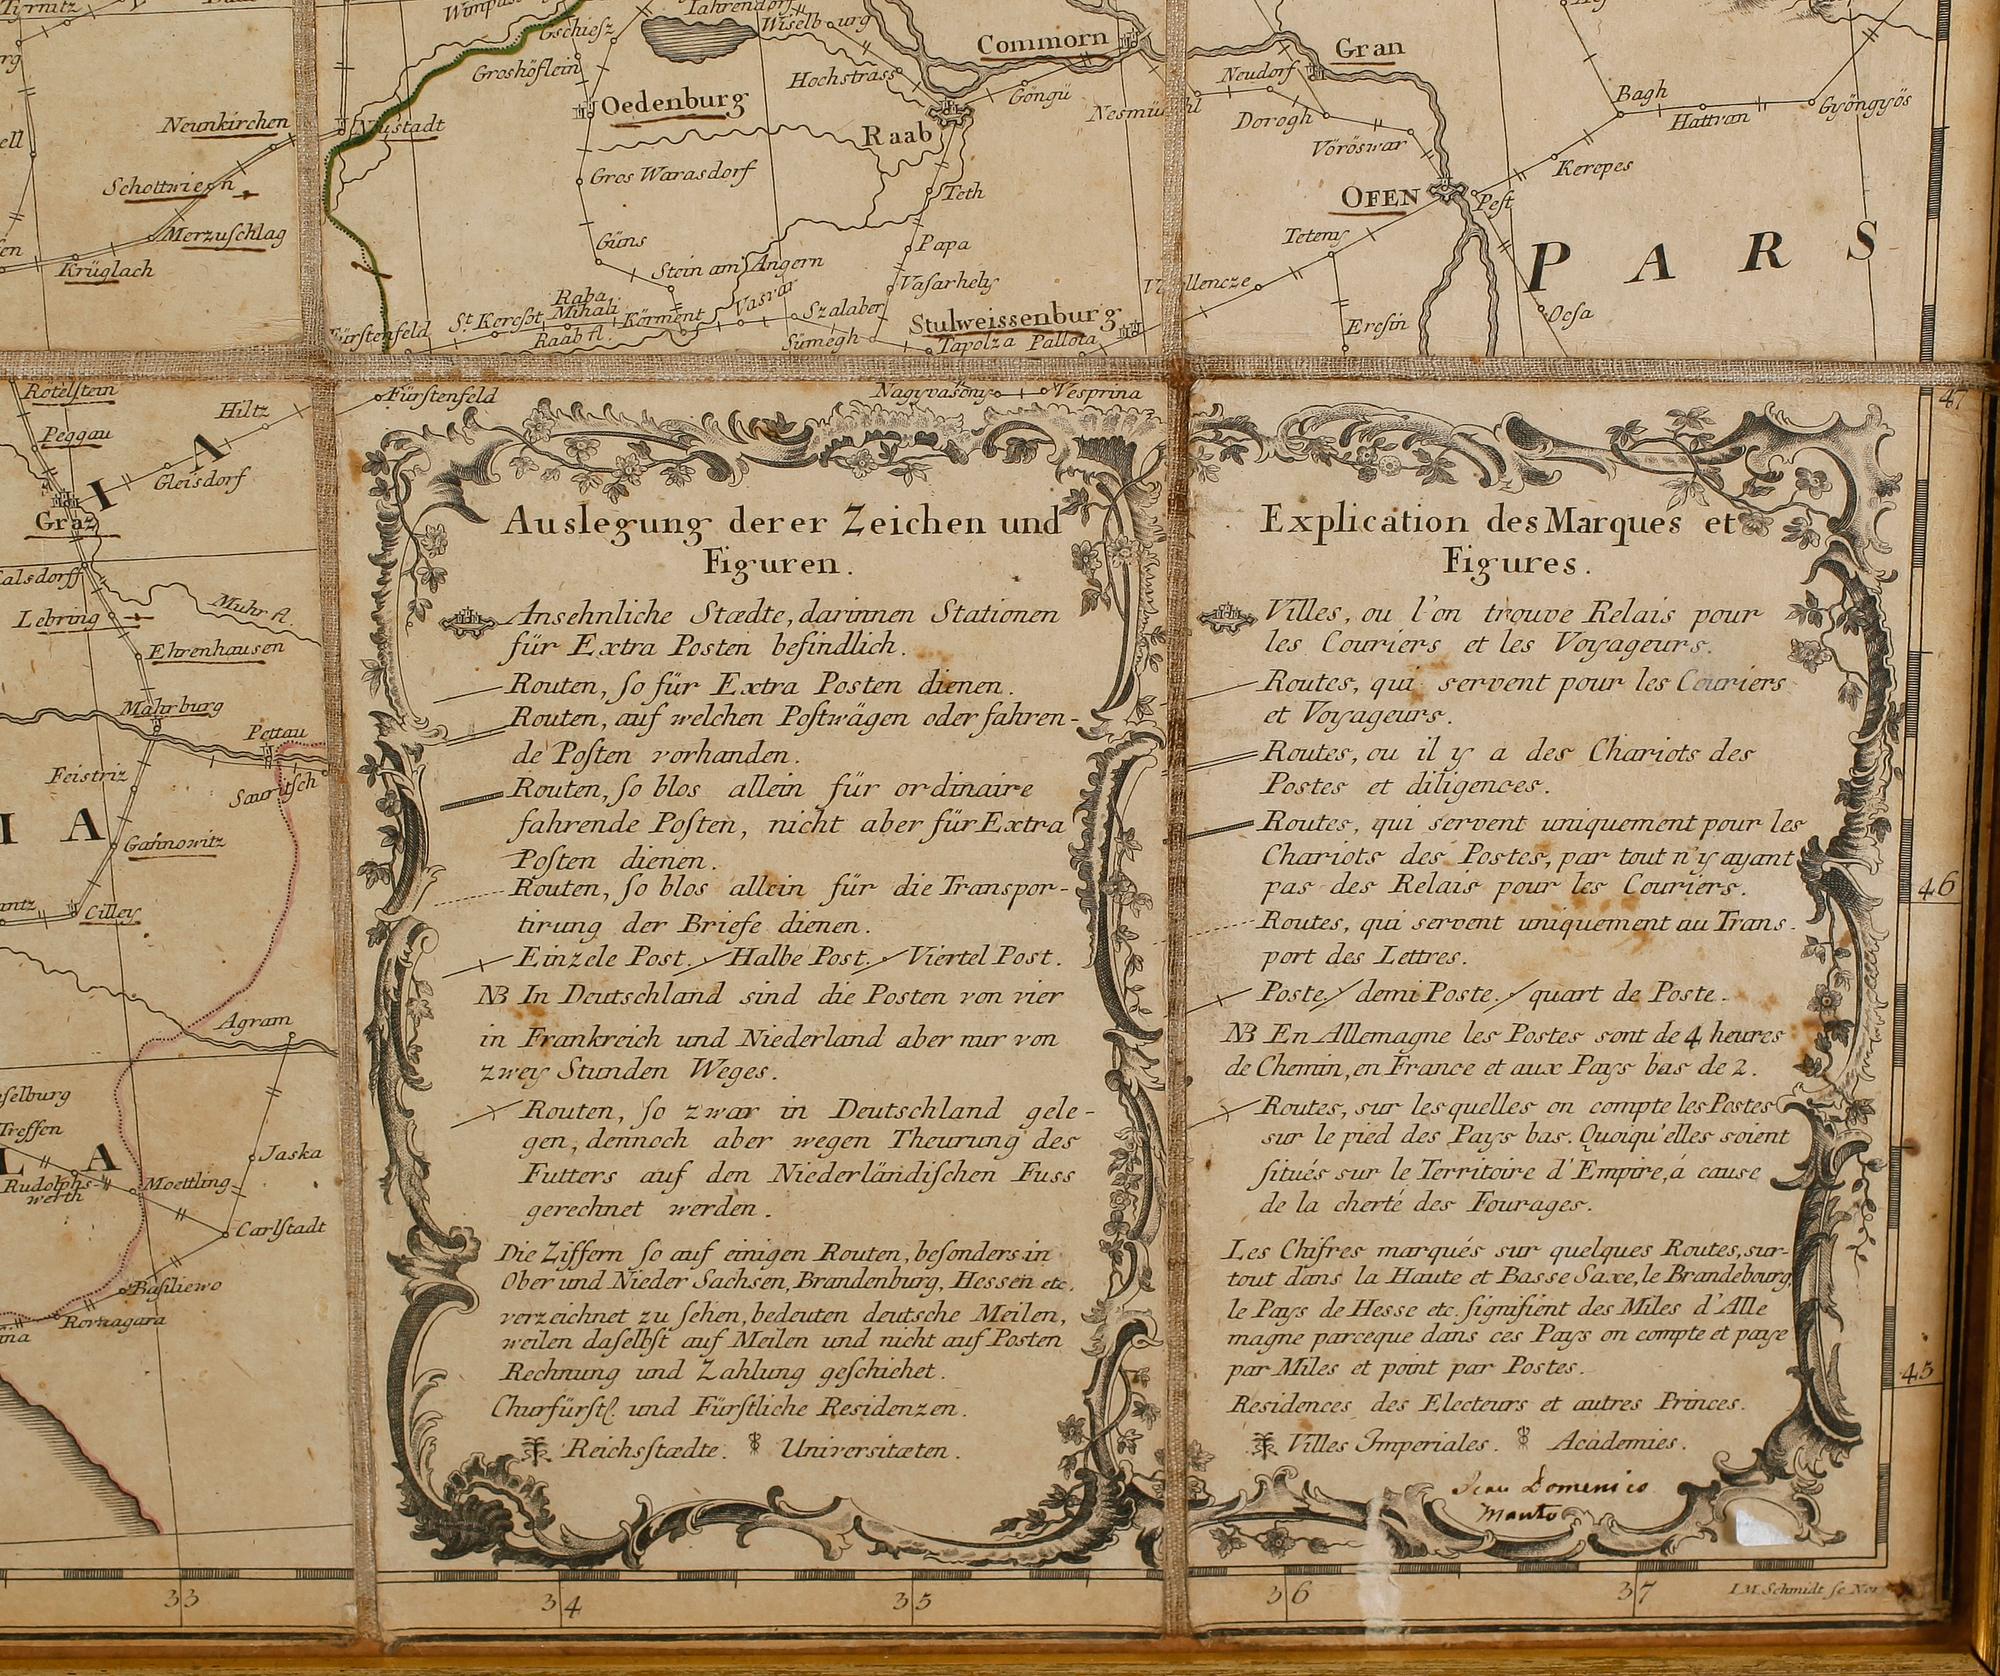 Tahrendorf
Gschiesz
Wiselburg
Commorn
Gran
Groshöflein
Hochstrass
Neudorf
Bagh
Gyöngyös
Oedenburg
Göngü
Nesmühl
Dorogh
Hattvan
Neunkirchen
Neustadt
Raab
Vöröswar
Kerepes
Gros Warasdorf
Schottwien
Teth
OFEN
Pest
Merzuschlag
Güns
Papa
Teteny
PARS
Krüglach
Stein am Angern
Vasarhely
Raba Mihali
Vasvar
St. Kereszt
Körment
Szalaber
Stulweissenburg
Ercsin
Ocsa
Fürstenfeld
Raab fl.
Sümegh
Tapolza
Pallota
Rötelstein
Hiltz
Fürstenfeld
Nagyvasony
Vesprina
47
Peggau
I A
Gleisdorf
Graz
Muhr fl.
Lebring
Ehrenhausen
Mahrburg
Pettau
Feistriz
Sauritsch
I A
Gahnowitz
Cilley
46
Agram
Treffen
Jaska
L A
Rudolphs-
werth
Moettling
Carlstadt
Basiliewo
Rovnagara
45
Auslegung derer Zeichen und
Figuren.
Ansehnliche Stædte, darinnen Stationen
für Extra Posten befindlich.
Routen, ſo für Extra Posten dienen.
Routen, auf welchen Poſtwägen oder fahren-
de Poſten vorhanden.
Routen, ſo blos allein für ordinaire
fahrende Poſten, nicht aber für Extra
Poſten dienen.
Routen, ſo blos allein für die Transpor-
tirung der Briefe dienen.
Einzele Post. Halbe Post. Viertel Post.
NB In Deutschland sind die Posten von vier
in Frankreich und Niederland aber nur von
zwey Stunden Weges.
Routen, ſo zwar in Deutschland gele-
gen, dennoch aber wegen Theurung des
Futters auf den Niederländiſchen Fuss
gerechnet werden.
Die Ziffern ſo auf einigen Routen, beſonders in
Ober und Nieder Sachsen, Brandenburg, Hessen etc.
verzeichnet zu ſehen, bedeuten deutsche Meilen,
weilen daſelbſt auf Meilen und nicht auf Posten
Rechnung und Zahlung geſchiehet.
Churfürſtl. und Fürſtliche Residenzen.
Reichsſtædte. Universitæten.
Explication des Marques et
Figures.
Villes, ou l'on trouve Relais pour
les Couriers et les Voyageurs.
Routes, qui servent pour les Couriers
et Voyageurs.
Routes, ou il y a des Chariots des
Postes et diligences.
Routes, qui servent uniquement pour les
Chariots des Postes, par tout n'y ayant
pas des Relais pour les Couriers.
Routes, qui servent uniquement au Trans-
port des Lettres.
Poste. demi Poste. quart de Poste.
NB En Allemagne les Postes sont de 4 heures
de Chemin, en France et aux Pays bas de 2.
Routes, sur lesquelles on compte les Postes
sur le pied des Pays bas. Quoiqu'elles soient
ſitués sur le Territoire d'Empire, á cause
de la cherté des Fourages.
Les Chifres marqués sur quelques Routes, sur-
tout dans la Haute et Basse Saxe, le Brandebourg,
le Pays de Hesse etc. ſignifient des Miles d'Alle
magne parceque dans ces Pays on compte et paye
par Miles et point par Postes.
Residences des Electeurs et autres Princes.
Villes Imperiales. Academies.
33
34
35
36
37
I.M. Schmidt ſc.